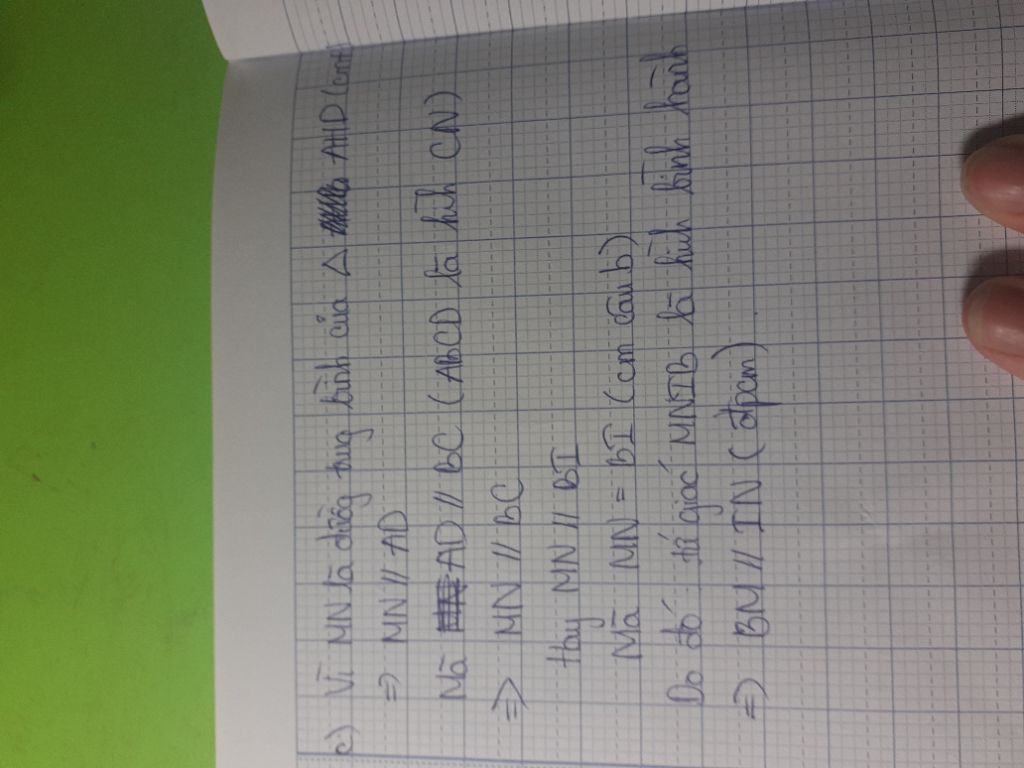 c) Vì MN là đường trung bình của △ AHD (cmt)
=> MN // AD
Mà AD // BC (ABCD là hình CN)
=> MN // BC
Hay MN // BI
Mà MN = BI (cm câu b)
Do đó tứ giác MNIB là hình bình hành
=> BM // IN (đpcm)